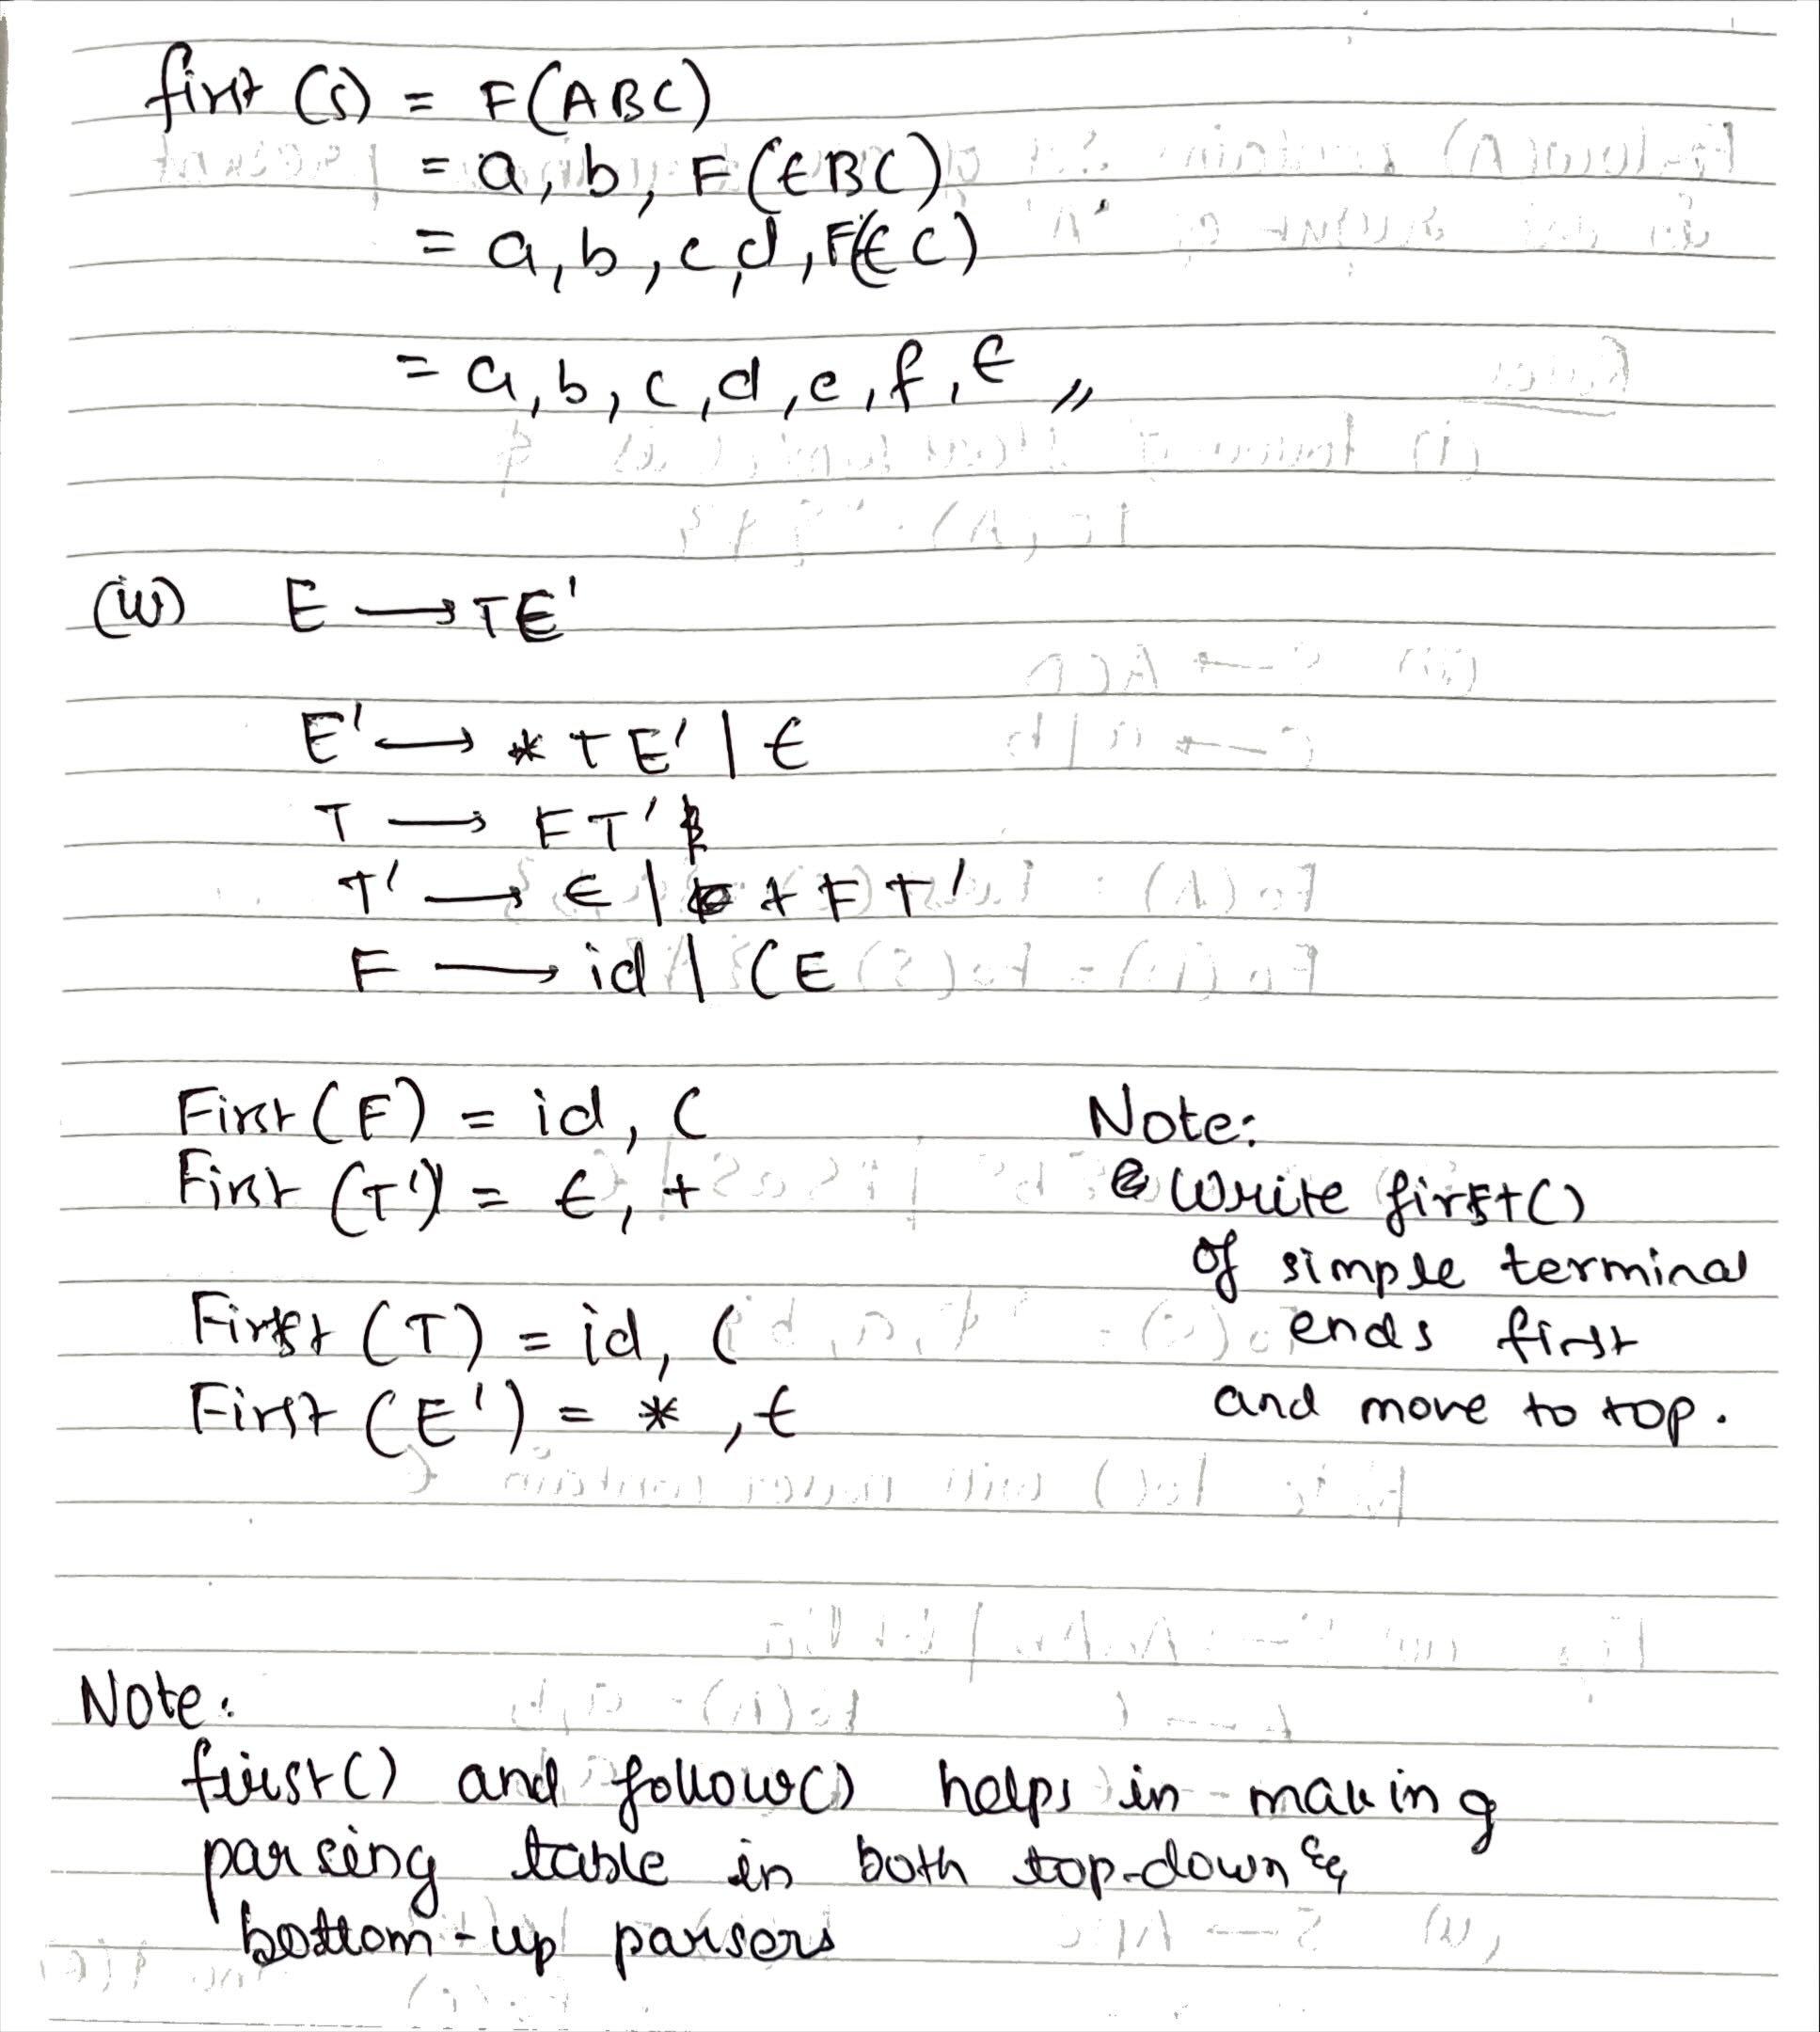 first (S) = F(ABC)
= a, b, F(ϵBC)
= a, b, c, d, F(ϵC)
= a, b, c, d, e, f, ϵ //
(iv) E → TE'
E' → *TE' | ϵ
T → FT'
T' → ϵ | + FT'
F → id | (E
First (F) = id, (
First (T') = ϵ, +
First (T) = id, (
First (E') = *, ϵ
Note:
Write first()
of simple terminal
ends first
and move to top.
Note:
first() and follow() helps in making
parsing table in both top-down &
bottom-up parsers